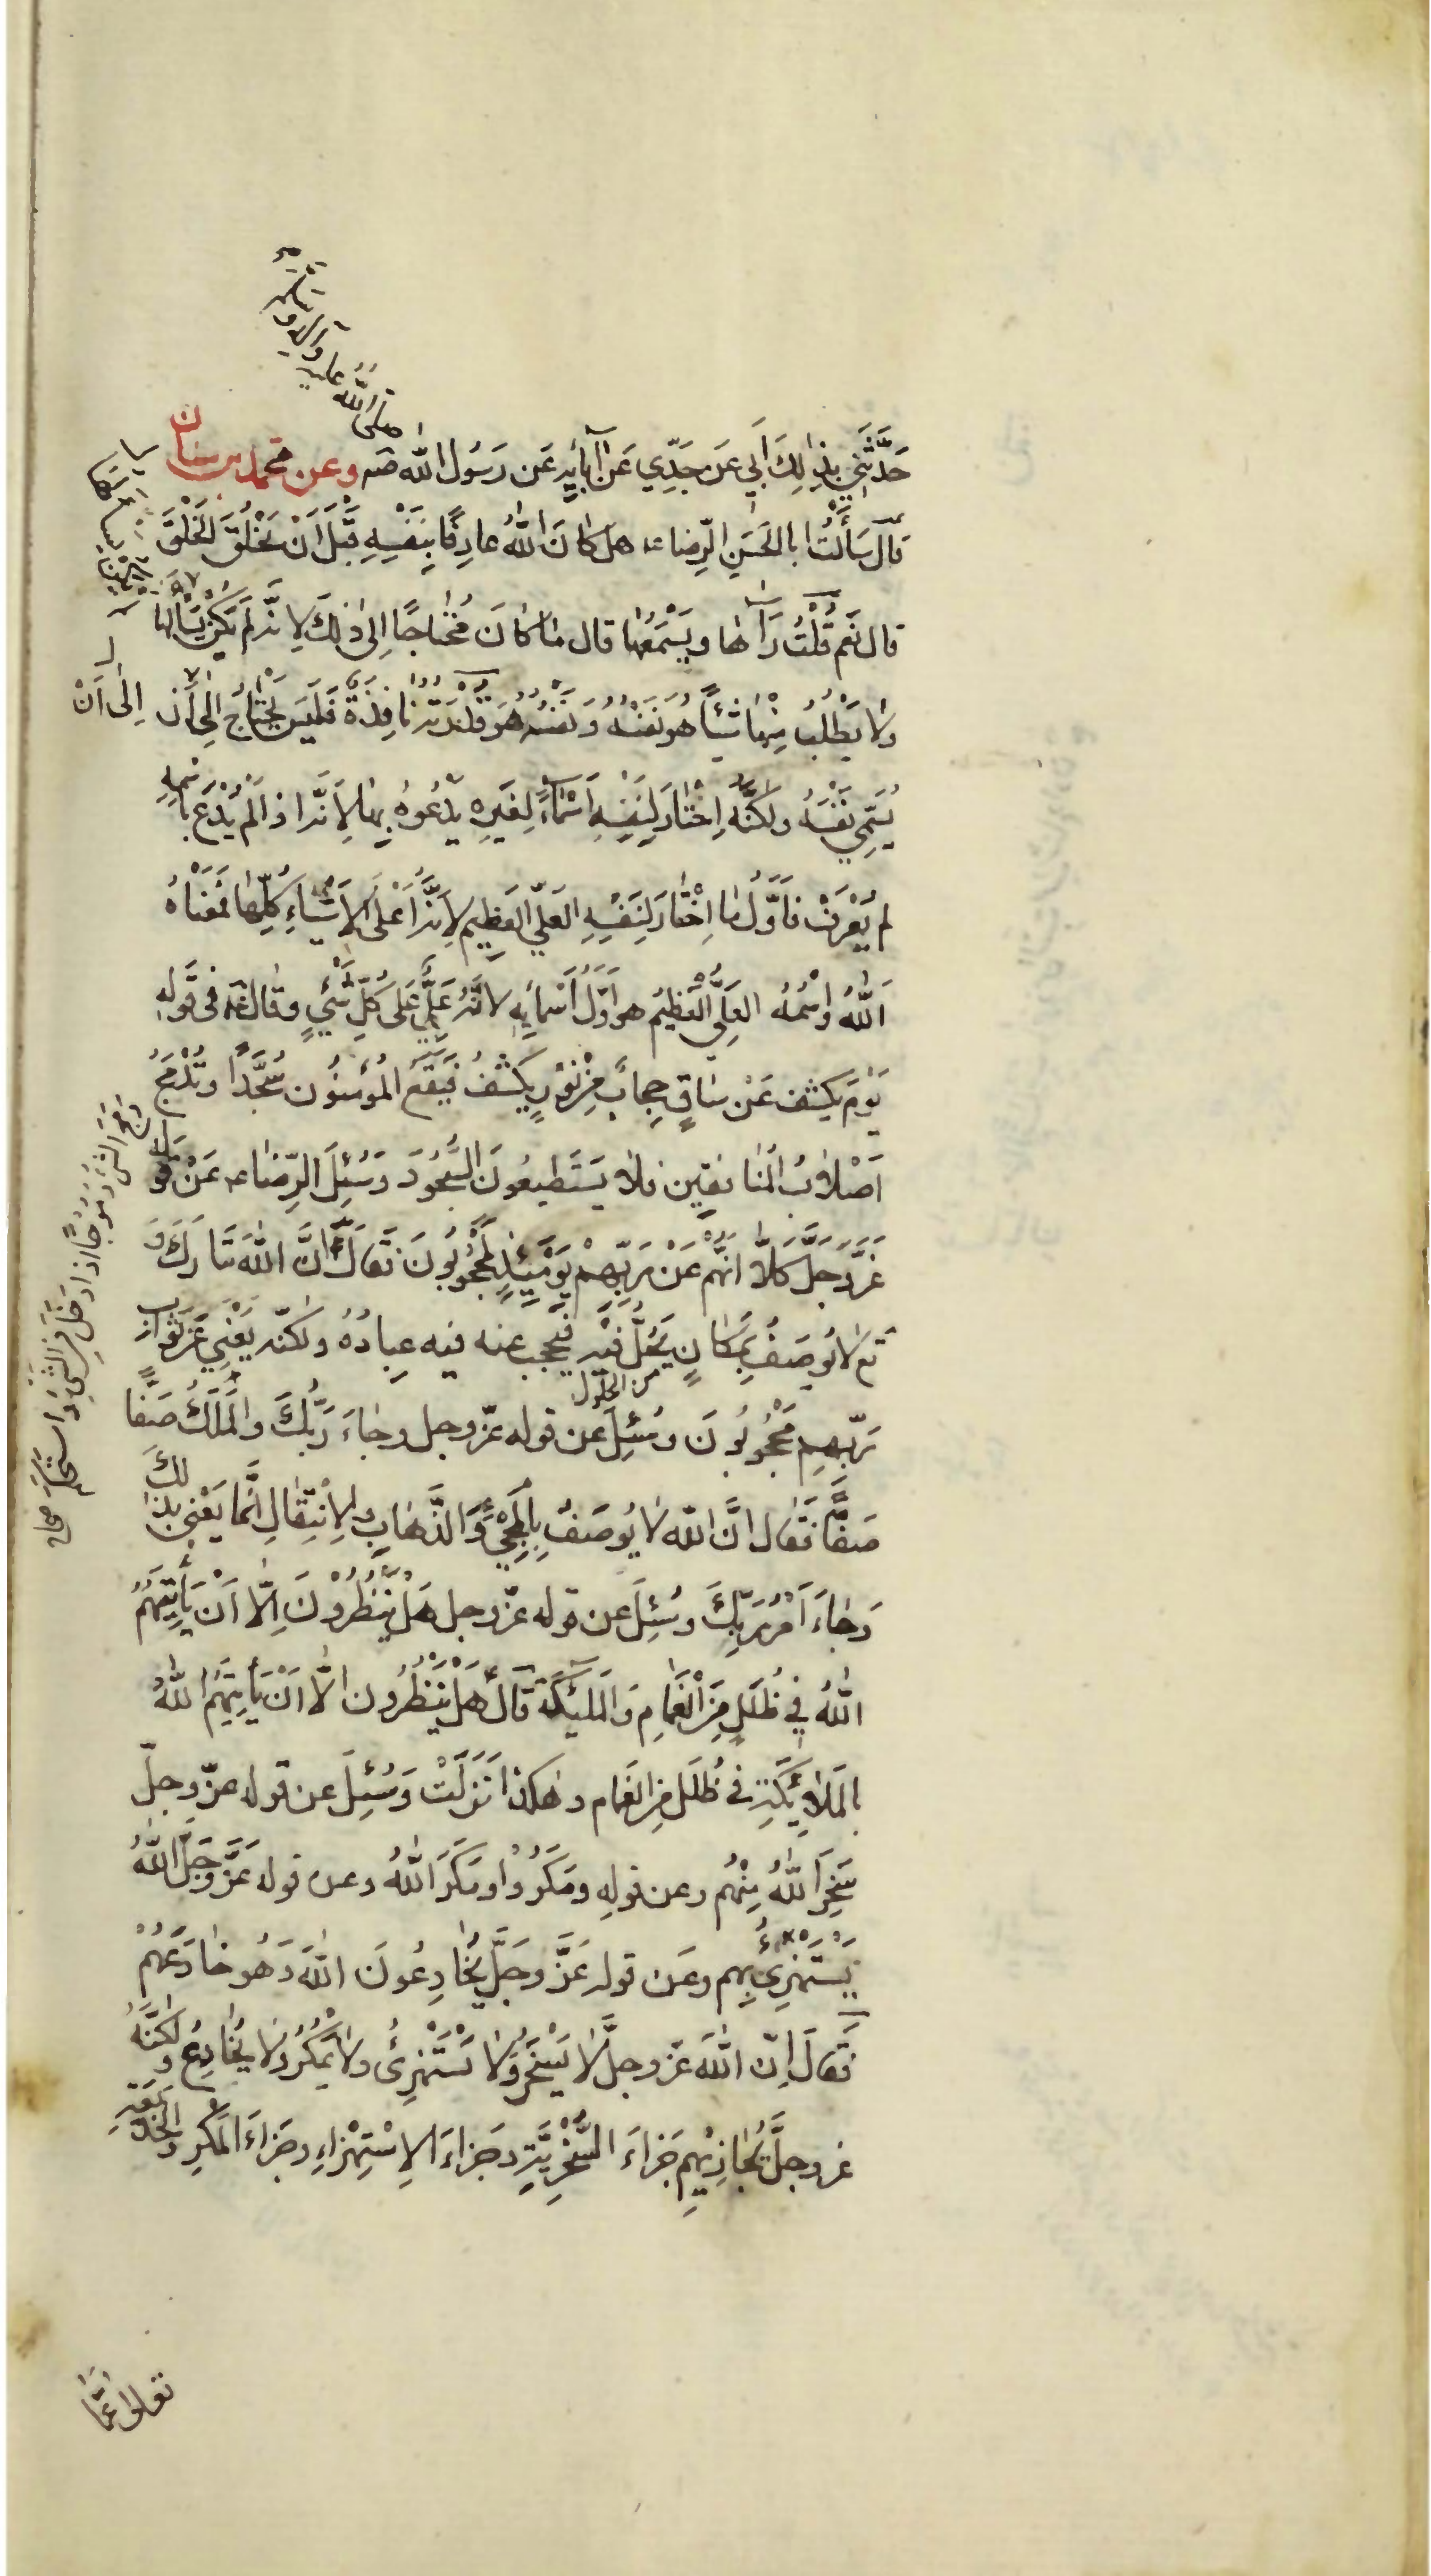 صلى الله عليه وآله وسلم
حَدَّثَنِي بِذٰلِكَ اَبِي عَن جَدِّي عَن آبائِهِ عَن رَسُولِ الله صه وعن محمد بن سنان
قال سَأَلْتُ ابا الحَسَنِ الرِّضا عه هل كانَ اللهُ عارِفًا بِنَفْسِهِ قَبْلَ اَنْ يَخْلُقَ الْخَلْقَ
قال نَعَم قُلْتُ يَرَاهٰا ويَسْمَعُهٰا قال مٰا كانَ مُحْتٰاجًا اِلىٰ ذٰلِكَ لِانَّهُ لَم يَكُنْ يَسْأَلُها
ولٰا يَطْلُبُ مِنْهٰا شَيْئًا هُوَ نَفْسُهُ وَنَفْسُهُ هُوَ قُدْرَتُهُ نٰافِذَةٌ فَلَيْسَ يَحْتٰاجُ اِلىٰ اَن اِلىٰ اَنْ
يُسَمِّيَ نَفْسَهُ ولكنَّهُ اِخْتٰارَ لِنَفْسِهِ اَسْمٰاءً لِغَيرِهِ يَدْعُوهُ بِهٰا لِاَنَّهُ اذا لَمْ يُدْعَ بِاسْمِهِ
لم يُعْرَفْ فَاَوَّلُ مٰا اِخْتٰارَ لِنَفْسِهِ العَلِيُّ العَظِيم لِاَنَّهُ اَعْلَى الاَشْيٰاءِ كُلِّهٰا فَمَعْنٰاهُ
اَللهُ وَاسْمُهُ العَلِيُّ الْعَظِيمُ هو اَوَّلُ اَسْمٰائِهِ لانَّهُ عَلِيٌّ عَلٰى كُلِّ شَيْءٍ وقال عه فى قَولِهِ
يَوْمَ يُكشَف عَنْ سٰاقٍ حِجابٌ مِنْ نُوْرٍ يُكشَفُ فَيَقَعُ المُؤمِنُون سُجَّدًا وتُدْمَجُ
اَصْلٰابُ المُنٰافِقِين فلٰا يَسْتَطِيعُونَ السُّجُودَ وَسُئِلَ الرِّضٰا عه عَنْ قَوله
عَزَّ وجَلَّ كَلّٰا اِنَّهُم عَنْ رَبِّهِمْ يَوْمَئِذٍ لَمَحْجُوبُونَ فَقالَ اِنَّ اللهَ تَبٰارَكَ وَ
تع لا يُوصَفُ بِمَكانٍ يَحُلُّ فِيْهِ فيحجب عنه فيه عِبادُهُ ولكنّه يَعْنِي عَن ثَوٰاب
من الحلول
رَبِّهِم مَحْجُوبُونَ وسُئِلَ عن قوله عزّ وجل وجٰاءَ رَبُّكَ والمَلَكُ صَفًّا
صَفًّا فقال اِنَّ الله لٰا يُوصَفُ بِالمَجِيْءِ وَالذَّهٰابِ والاِنْتِقٰالِ اِنَّمٰا يَعْنِي بِذٰلكَ
وَجٰاءَ اَمْرُ رَبِّكَ وسُئِلَ عن قوله عزّ وجل هَل يَنْظُرُوْنَ اِلّٰا اَنْ يَأْتِيَهُمُ
اللهُ فِي ظُلَلٍ مِنَ الْغَمٰامِ وَالمَلٰئِكَةُ قٰالَ هَلْ يَنْظُرُون الّٰا اَنْ يَأْتِيَهُم اللهُ
بِالمَلٰائِكَةِ فى ظُلَلٍ مِن الغَمام وهٰكذا نَزَلَتْ وَسُئِلَ عن قوله عزّ وجلّ
سَخِرَ اللهُ مِنْهُم وعن قولِهِ ومَكَرُوْا ومَكَرَ اللهُ وعن قوله عَزَّ وَجَلَّ اللهُ
يَسْتَهْزِئُ بِهِم وعَن قوله عَزَّ وجَلَّ يُخٰادِعُونَ اللهَ وَهُو خٰادِعُهُمْ
فَقالَ اِنّ اللهَ عزّ وجلَّ لٰا يَسْخَرُ وَلٰا يَسْتَهْزِئُ ولٰا يَمْكُرُ ولٰا يُخٰادِعُ ولٰكنَّهُ
عز وجلَّ يُجٰازِيْهِم جَزاءَ السُّخْرِيَّةِ وجَزاءَ الاِسْتِهْزاءِ وجَزاءَ المَكْرِ والخَدْيعَةِ
دَمَجَ الشَّيْءُ دُمُوجًا اذا دَخَلَ في الشَّيْءِ وَاسْتَحْكَمَ صحاح
تعالى عَمّٰا